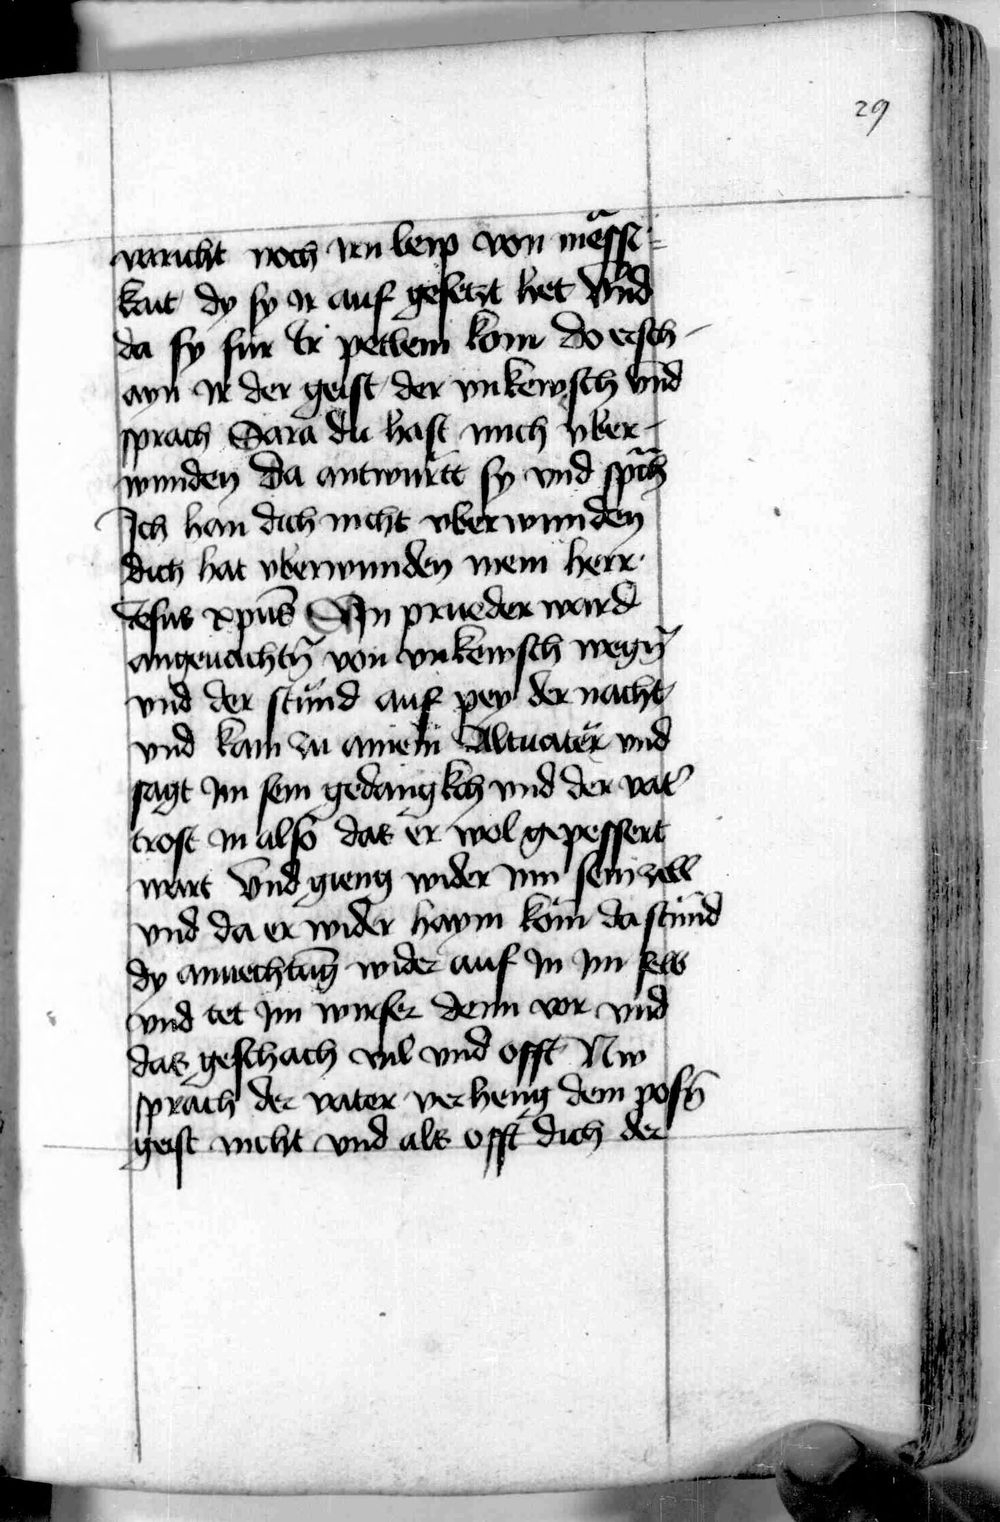 29
varicht noch irn leip von mässi-
kait dy sy ir auf gesetzt het Vnd
da sy fur ir petlein kom do ersch-
ayn ir der geist der vnkewsch vnd
sprach Sara du hast mich vber-
wunden da antwurtt sy vnd sprach
Ich han dich nicht vberwunden
dich hat vberwunden mein herr
Jesus xpus Ain prueder ward
angeuachtn̄ von vnkewsch wegn̄
vnd der stuind auf pey der nacht
vnd kam zu ainem Altuater vnd
sagt im sein gedangkch vnd der vat'
trost in also das er wol gepessert
wart Vnd gieng wider inn sein zell
vnd da er wider haym kom da stuind
dy anuechtung wider auf in im selb
vnd tet im wirser denn vor vnd
das geschach vil vnd offt Nw
sprach der vater verheng dem posn̄
geist nicht vnd als offt dich der